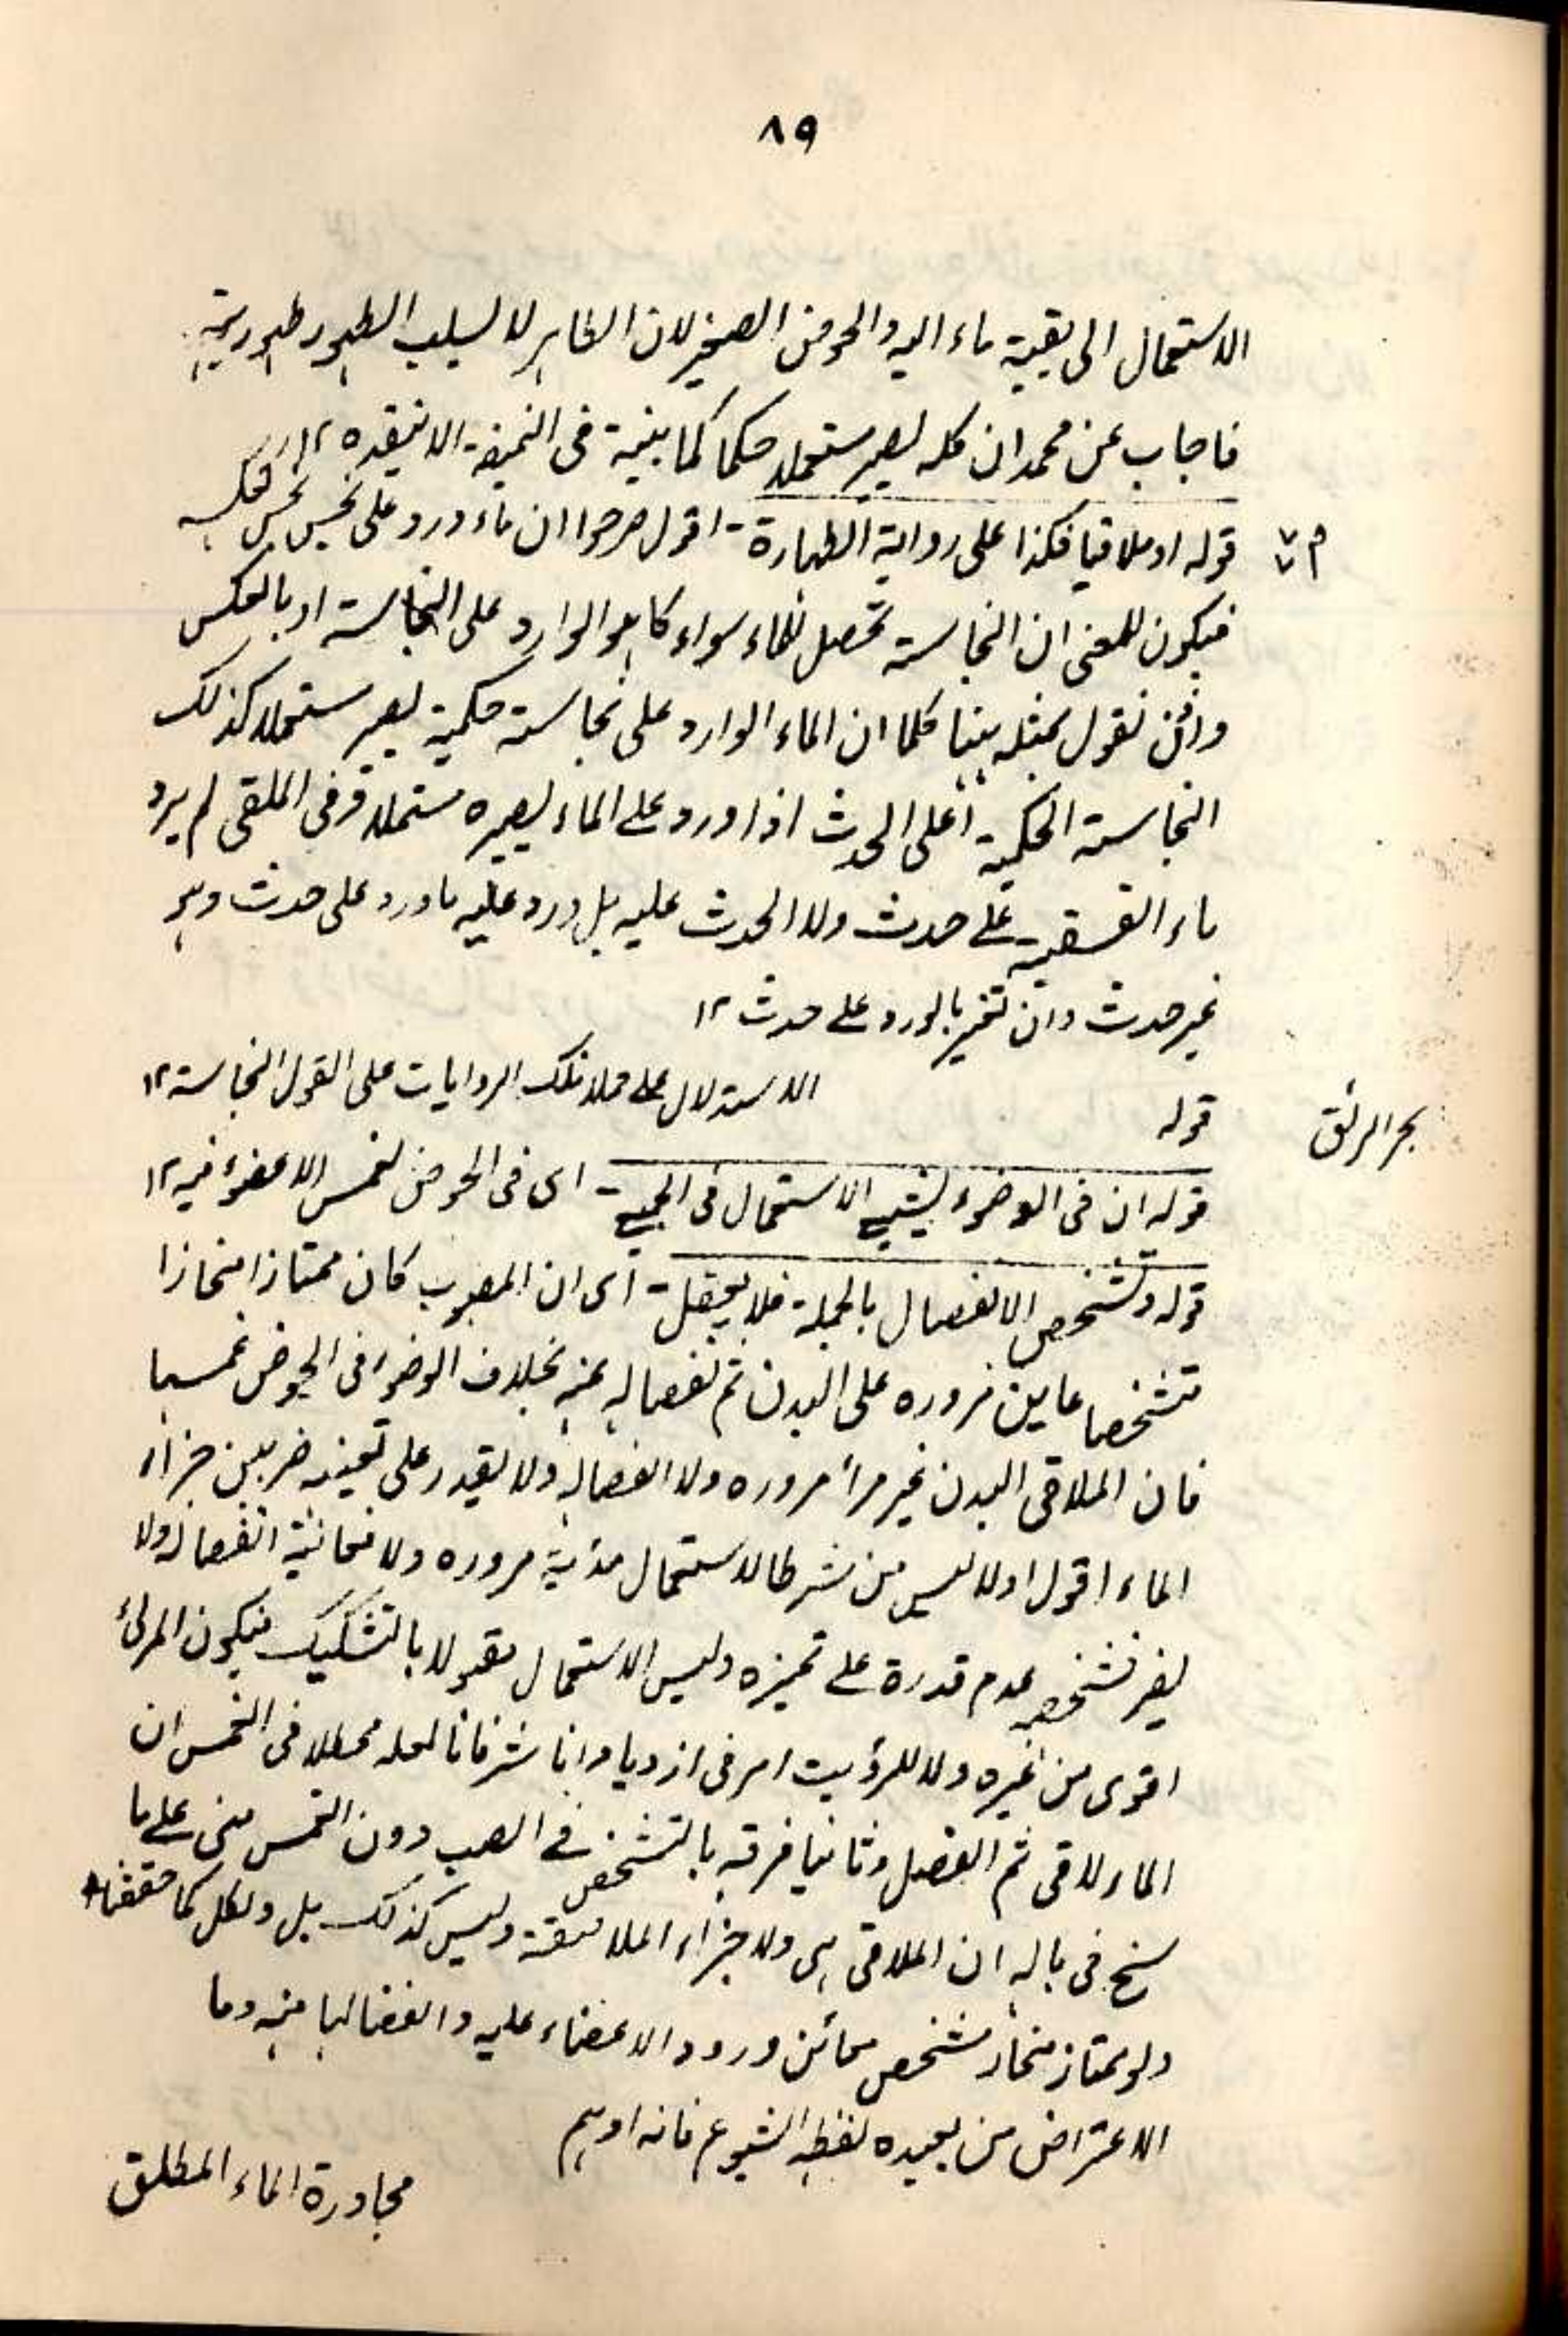 ٨٩
الاستعمال الى بقية ماء البير والحوض الصغير لان الطاهر لا يسلب الطهور طهوريته
فاجاب عن محمد ان كله يصير مستعملا حكما كما بينه فى النميقة الانيقه ١٢
قوله او ملاقيا فكذا على رواية الطهارة - اقول صرحوا ان ماء ورد على نجس نجس كعكسه
فيكون المعنى ان النجاسة تحصل للماء سواء كان هو الوارد على النجاسة او بالعكس
ونحن نقول بمثله بينا كلما ان الماء الوارد على نجاسة حكمية يصير مستعملا كذلك
النجاسة الحكمية اعلى الحدث اذا ورد على الماء يصيره مستعملا وفى الملقى لم يرد
ماء الفسقية على حدث ولا الحدث عليه بل ورد عليه ما ورد على حدث وهو
غير حدث وان تغير بالورد على حدث ١٢
بحر الرائق
قوله الاستدلال على حملا تلك الروايات على القول النجاسة ١٢
قوله ان فى الوضوء يشيع الاستعمال فى الجميع - اى فى الحوض لغمس الاعضاء فيه ١٢
قوله وتشخص الانفصال بالجملة فلا يعقل - اى ان المصبوب كان ممتازا منحازا
متشخصا عاين مروره على البدن ثم انفصاله عنه بخلاف الوضوء فى الحوض غمسا
فان الملاقى البدن غير مرأ مروره ولا انفصاله ولا يقدر على تعينه من بين اجزاء
الماء اقول اولا ليس من شرط الاستعمال رؤية مروره ولا معاينة انفصاله ولا
يضر تشخصه عدم قدرة على تميزه وليس الاستعمال مقولا بالتشكيك فيكون المرئ
اقوى من غيره ولا للرؤيت امر فى ازدياد
الماء لاقى ثم انفصل وثانيا فرقه بالتشخص فى الصب دون الغمس مبنى على ما
سنح فى باله ان الملاقى هى ولاجزاء الملاصقة وليس كذلك بل ولكل كما حققنا
ولو ممتاز منحاز متشخص معائن ورود الاعضاء عليه وانفصالها عنه وما
الاعتراض من بعيده لفظه الشيوع فانه اوهم
مجاورة الماء المطلق